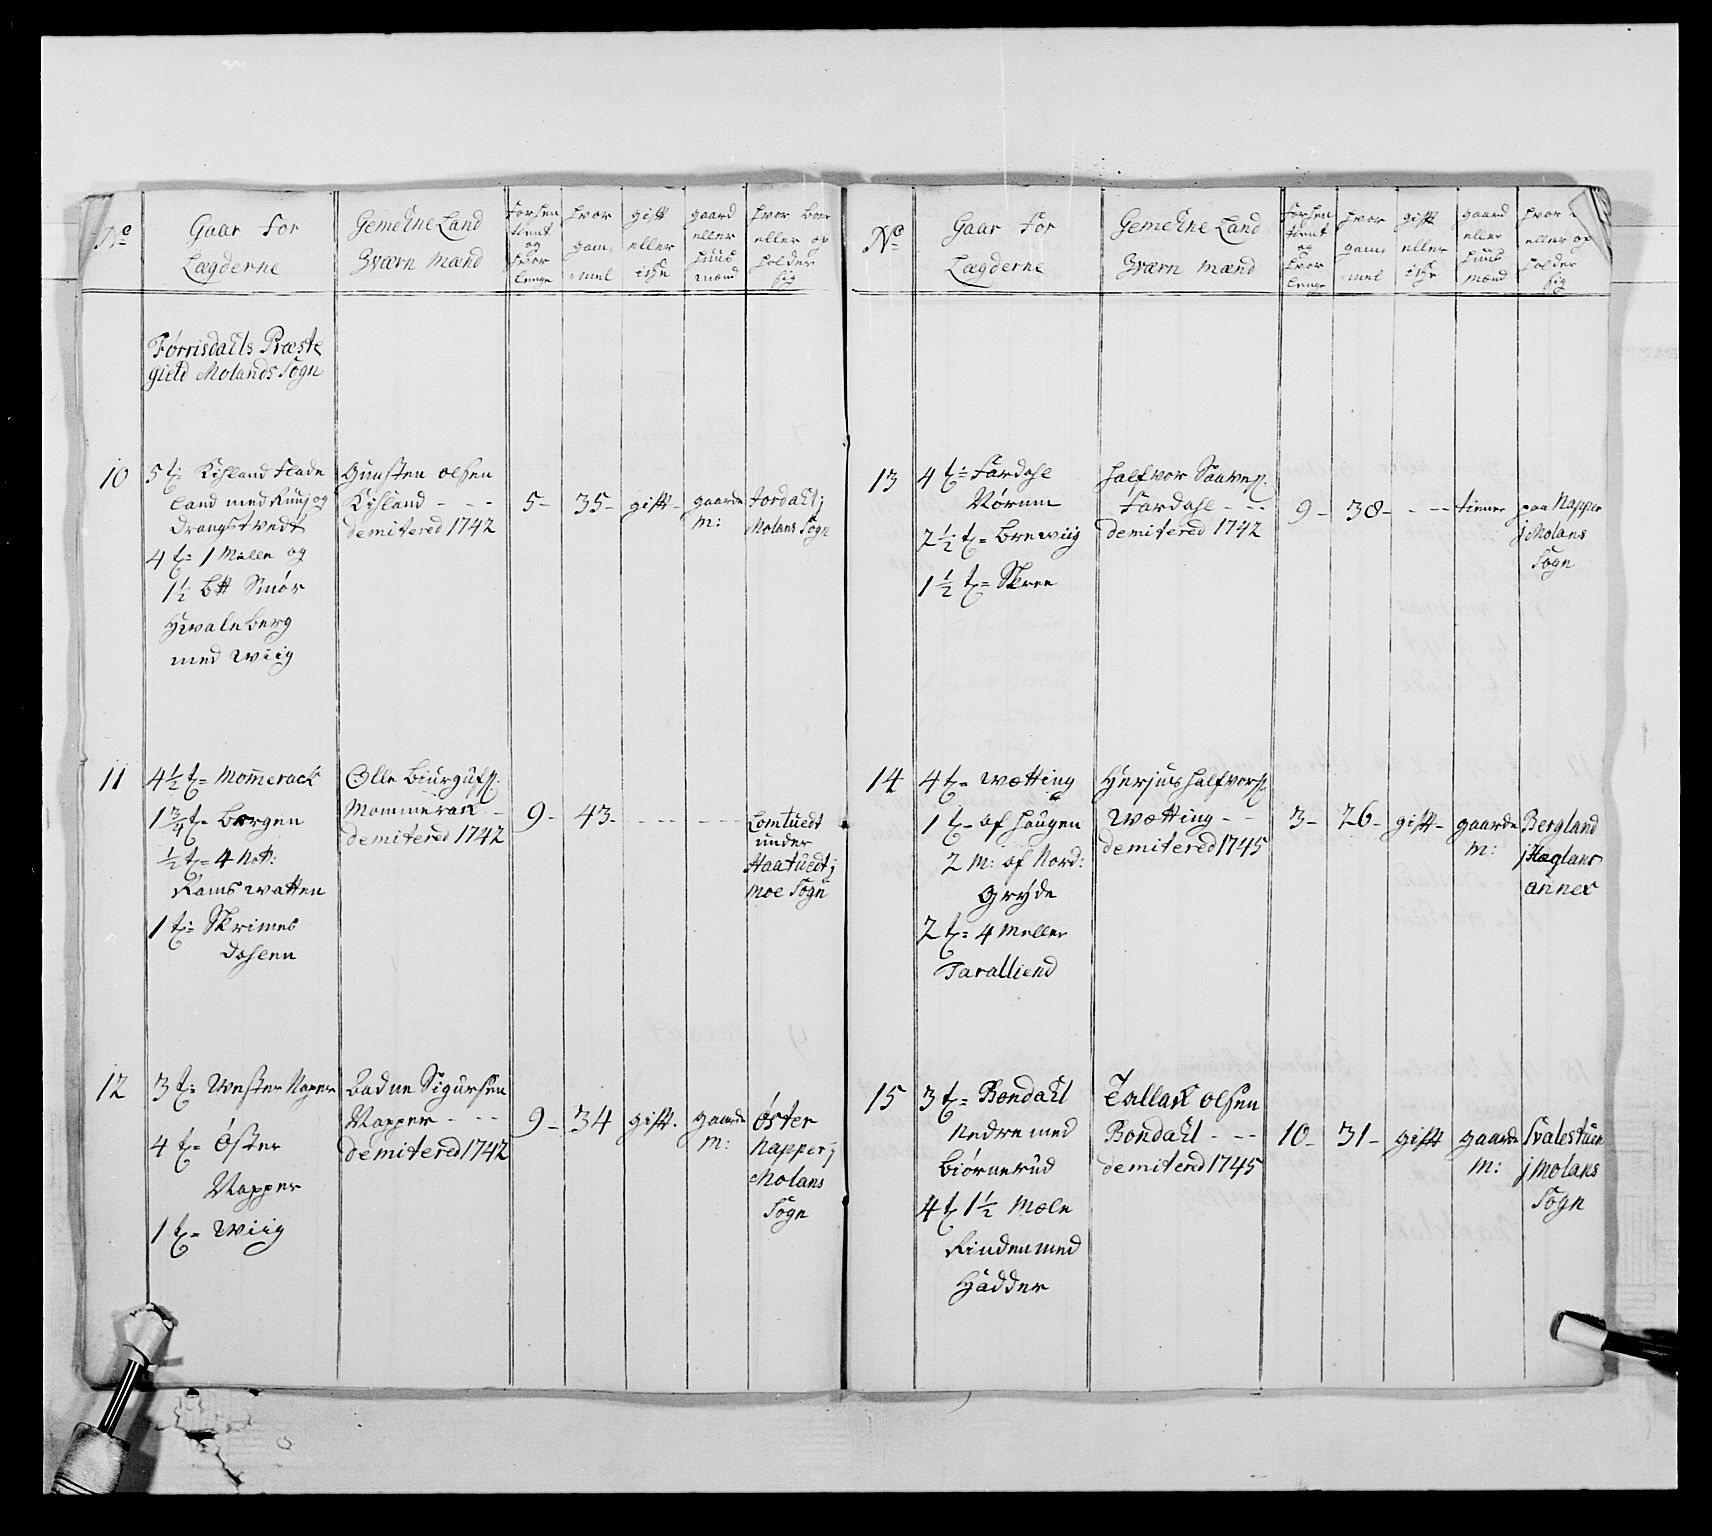 No
Gaar for
Lægderne
Gemehne Land
Værn Mænd
forhen
tient
og
hvor
lenge
hvor
gam
mel
gift
eller
iche
gaard
eller
huus
mænd
hvor boer
eller op
holder
sig
Førrisdahls Præste
gield Molands Sogn
10
5 t= Kihland Flade
Land med Ruuj og
Drangstvedt
4 t= 1 Melle og
1 1/2 b# Smør
Hvaleberg
med Wiig
Gunsten Olsen
Kihland - - -
demitered 1742
5-
35-
gift-
gaarde
m:
fordahl j
Molans Sogn
11
4 1/2 t= Mom̄erack
1 3/4 t= Bergen
1/2 t= 4 Not:
Ramswatten
1 t= Skrimes
Dahlen
Olle Biurgufs.
Mommerak -
demitered 1742
9-
43-
- - -
- - -
Lomtuedt
under
Haatuedt j
Moe Sogn
12
3 t= Wester Napper
4 t= Øster
Napper
1 t= Wiig
Ladue Sigursen
Napper - - -
demitered 1742
9-
34
gift.
gaarde
m:
Øster
Napper j
Molans
Sogn
No
Gaar for
Lægderne
Gemehne Land
Værn Mænd
forhen
tient
og
hvor
lenge
hvor
gam
mel
gift
eller
iche
gaard
eller
huus
mænd
hvor
eller op
holder
sig
13
4 t= Fardahl
Nørum
2 1/2 t= Brewiig
1 1/2 t= Skree
Halfvor Saawes.
Fardahl - - -
demitered 1742
9-
38-
- - -
tiener
paa Napper
j Molans
Sogn
14
4 t= Wætting
1 t= af Haugen
2 M: af Nord:
Gryde
2 t= 4 Meller
Taralliend
Herjus Halfvors.
Wætting - -
demitered 1745
3-
26-
gift-
gaarde
m:
Bergland
j Hæglans
annex
15
3 t= Bondahl
Nedre med
Biørnerud
4 t 1 1/2 Mæle
Rinden med
Hadder
Tallak Olsen
Bondahl - - -
demitered 1745
10-
31-
gift
gaarde
m:
Svalestuen
j Molans
Sogn